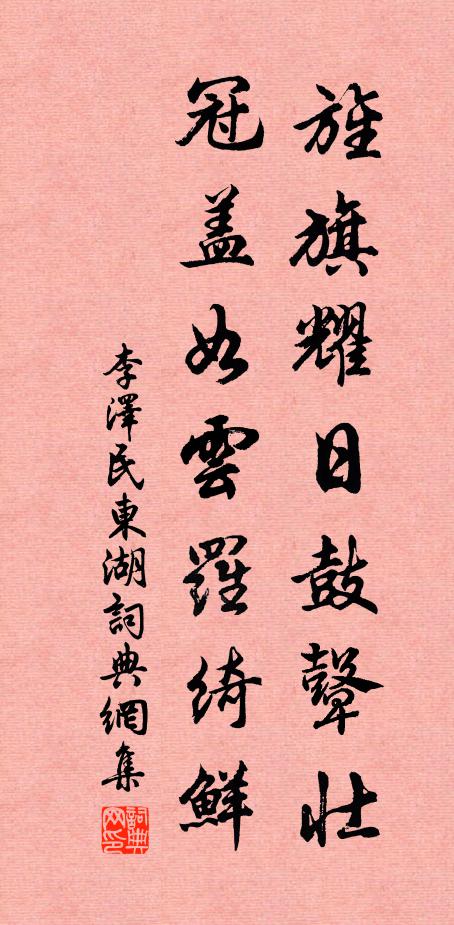 旌旗耀日鼓鼙壮
冠盖如雲羅綺鮮
李澤民東湖詞典網集
詞典
网印